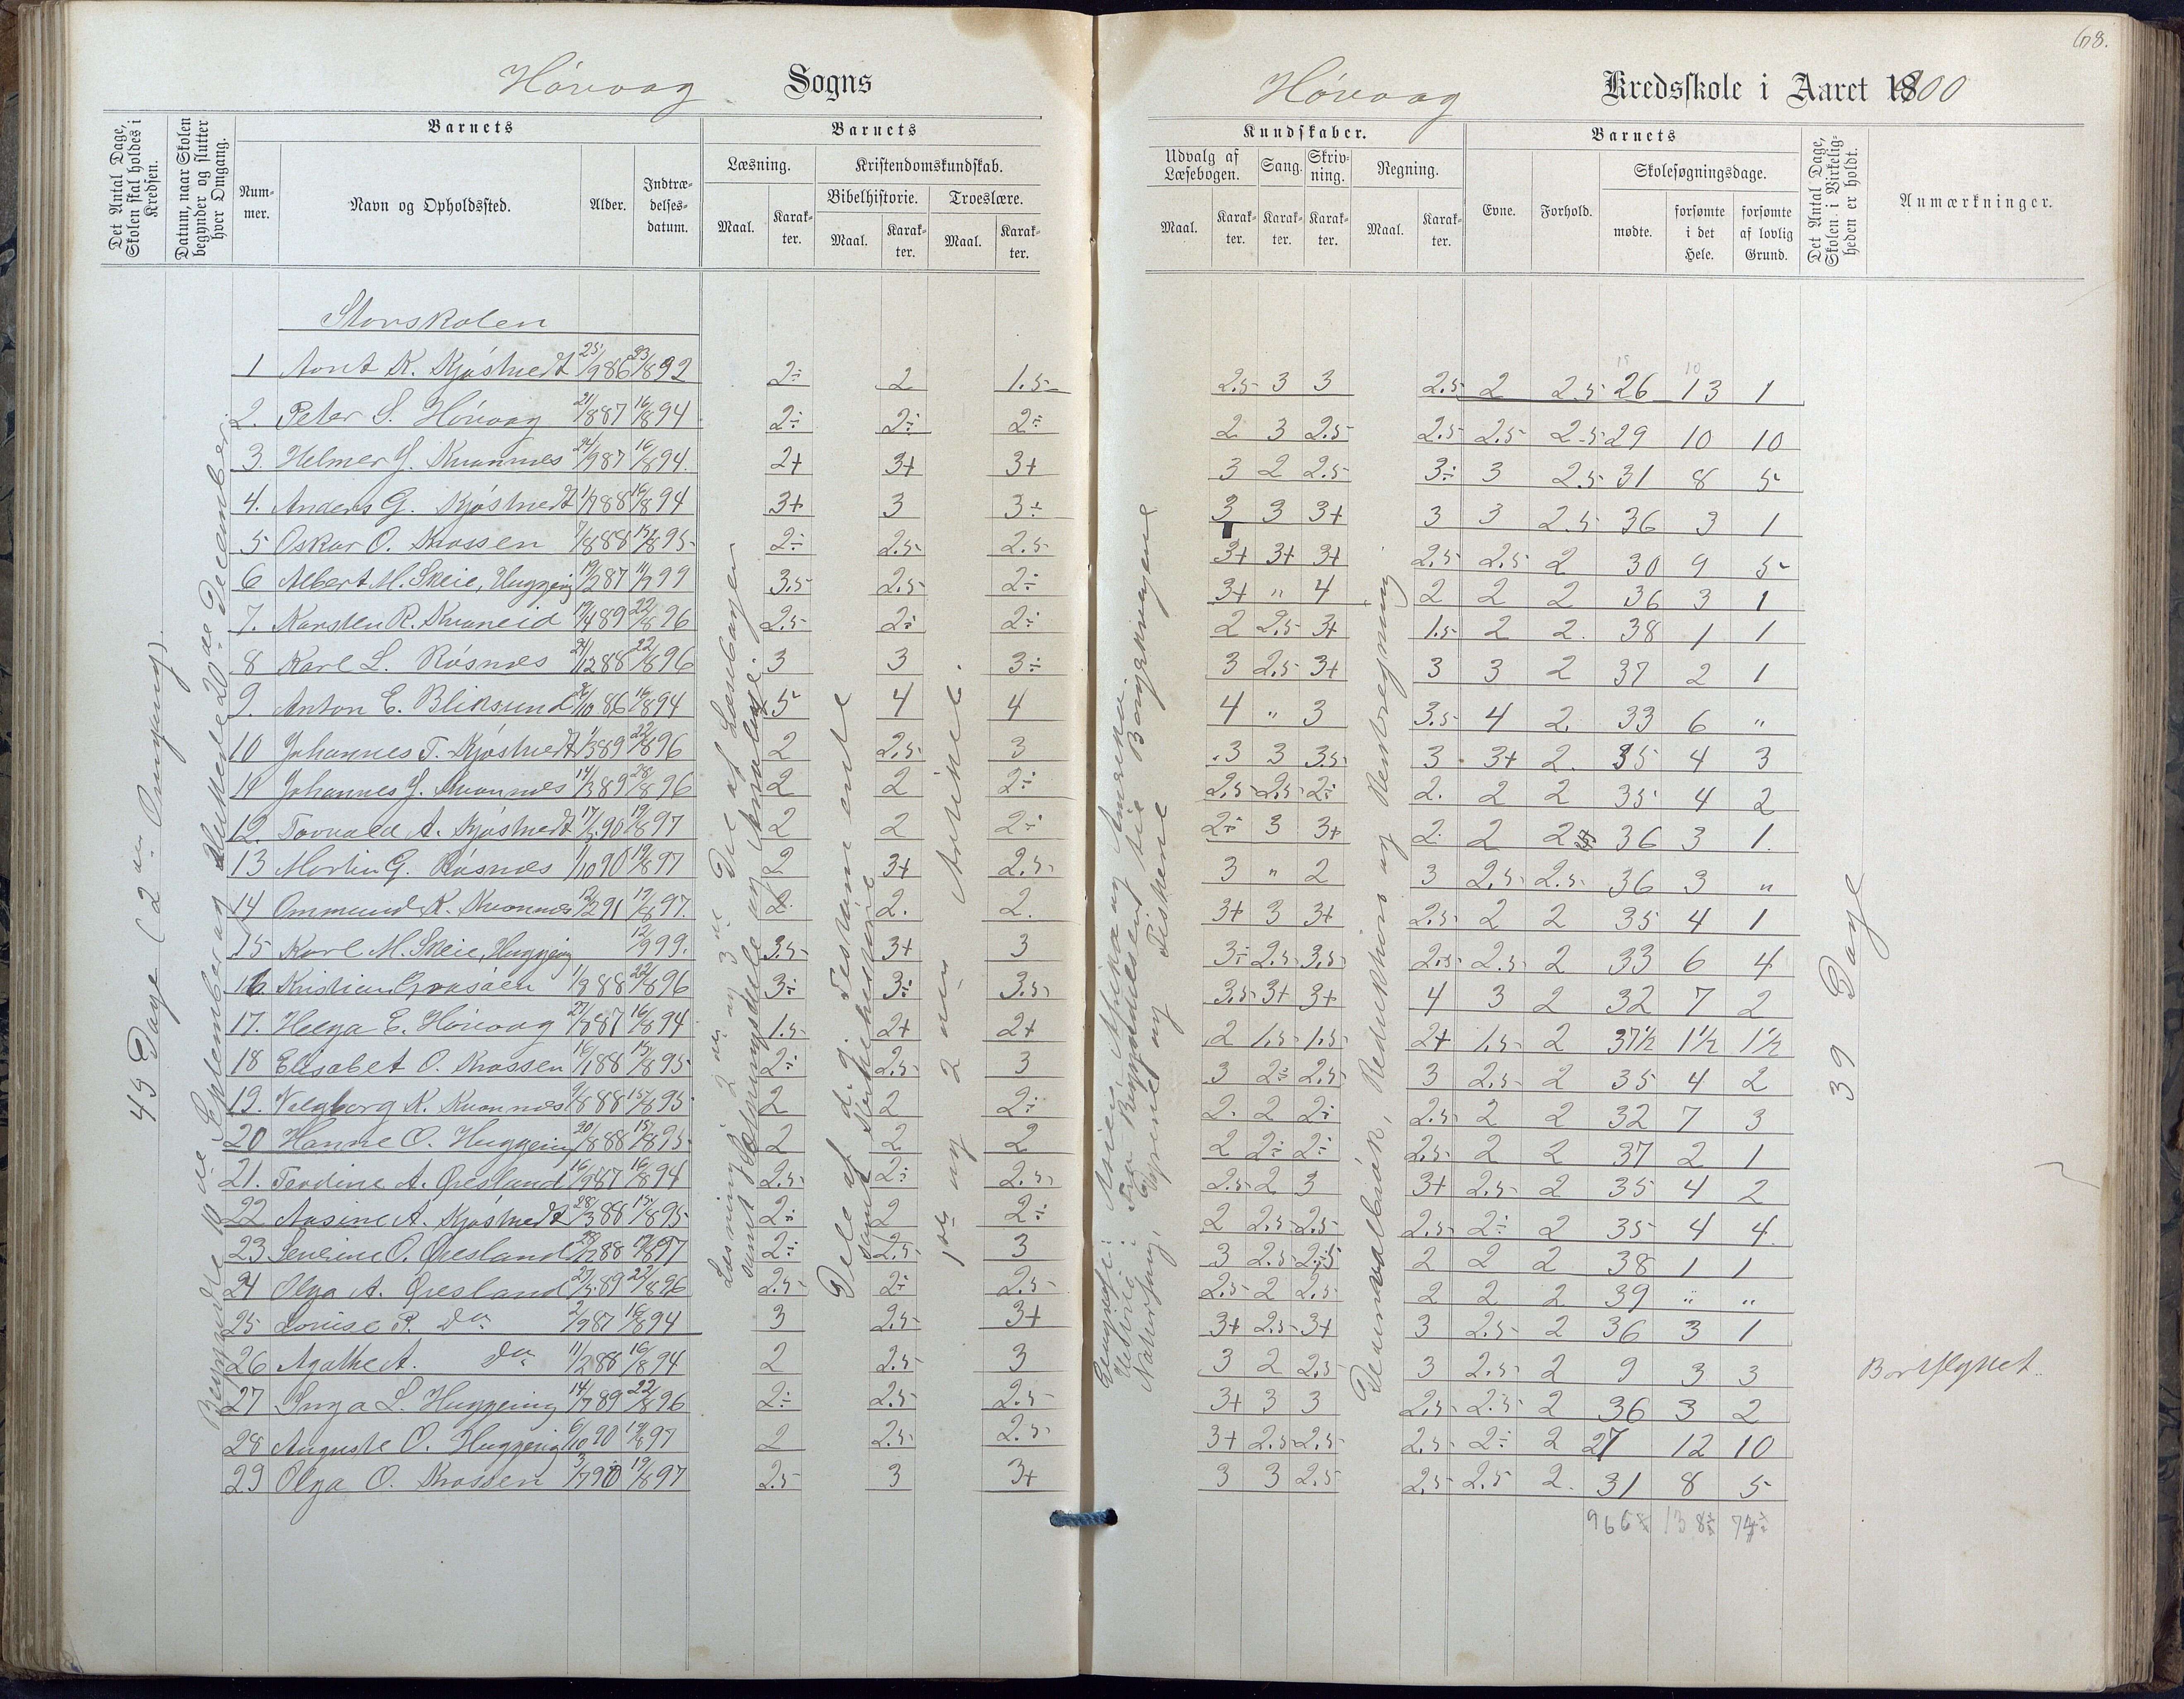 68.
Høvaag Sogns
Høvaag Kredsskole i Aaret 1900
Det Antal Dage, Skolen skal holdes i Kredsen.
Datum, naar Skolen begynder og slutter hver Omgang.
Barnets
Num-mer.
Navn og Opholdssted.
Alder.
Indtræ-delses-datum.
Barnets
Læsning.
Maal.
Karak-ter.
Kristendomskundskab.
Bibelhistorie.
Maal.
Karak-ter.
Troeslære.
Maal.
Karak-ter.
Kundskaber.
Udvalg af Læsebogen.
Maal.
Karak-ter.
Sang.
Karak-ter.
Skriv-ning.
Karak-ter.
Regning.
Maal.
Karak-ter.
Barnets
Evne.
Forhold.
Skolesøgningsdage.
mødte.
forsømte i det Hele.
forsømte af lovlig Grund.
Det Antal Dage, Skolen i Virkelig-heden er holdt.
Anmærkninger.
45 Dage (2den Omgang).
Begyndte 10de September og sluttede 20de December.
Læsning i 2den og 3de Del af Læsebogen
Dele af d.g. Testamente
samt Kirkehistorie
1ste og 2den Artikel.
Geografi: Asien, Afrika og Amerika.
Naturfag: Krybdyrene og Fiskene
Reduktion og Rentregning
39 Dage
Storskolen
1 Arnt K. Kjøstvedt 25/9 86 23/8 92 2÷ 2 1.5 2.5 3 3 2.5 2 2.5 26 13 1
2. Peter S. Høvaag 21/8 87 16/8 94 2÷ 2÷ 2÷ 2 3 2.5 2.5 2.5 2.5 29 10 10
3. Helmer G. Kvannes 24/9 87 16/8 94. 2+ 3+ 3+ 3 2 2.5 3÷ 3 2.5 31 8 5
4. Anders G. Kjøstvedt 1/7 88 16/8 94 3+ 3 3÷ 3 3 3+ 3 3 2.5 36 3 1
5 Oskar O. Krossen 7/8 88 15/8 95 2÷ 2.5 2.5 3+ 3+ 3+ 2.5 2.5 2 30 9 5
6 Albert M. Skeie, Huggeng 19/2 87 11/9 99 3.5 2.5 2÷ 3+ " 4 2 2 2 36 3 1
7. Karsten R. Kvaneid 19/4 89 22/8 96 2.5 2÷ 2÷ 2 2.5 3+ 1.5 2 2. 38 1 1
8 Karl L. Røsnes 24/12 88 22/8 96 3 3 3÷ 3 2.5 3+ 3 3 2 37 2 1
9. Anton E. Bliksund 26/10 86 16/8 94 5 4 4 4 " 3 3.5 4 2. 33 6 "
10 Johannes T. Kjøstvedt 1/3 89 22/8 96 2 2.5 3 3 3 3.5 3 3+ 2. 35 4 3
11 Johannes G. Kvannes 14/3 89 28/8 96 2 2 2÷ 2.5 2.5 2÷ 2. 2 2 35 4 2
12. Torvald A. Kjøstvedt 17/5 90 19/8 97 2 2 2÷ 2÷ 3 3+ 2. 2 2 36 3 1.
13 Martin G. Røsnes 1/10 90 19/8 97 2 3+ 2.5 3 " 2 3 2.5 2.5 36 3 "
14 Ommund K. Kvannes 12/2 91 19/8 97. 2. 2. 2. 3+ 3 3+ 2.5 2 2 35 4 1
15 Karl M. Skeie, Huggeng 12/9 99. 3.5 3+ 3 3÷ 2.5 3.5 2.5 2.5 2 33 6 4
16. Kristian Graasaen 1/9 88 22/8 96 3÷ 3÷ 3.5 3.5 3+ 3+ 4 3 2 32 7 2
17. Helga E. Høvaag 27/8 87 16/8 94 1.5 2+ 2+ 2 1.5 1.5 2+ 1.5 2 37½ 1½ 1½
18 Elisabet O. Krossen 16/1 88 15/8 95 2÷ 2.5 3 3 2÷ 2.5 3 2.5 2 35 4 2
19. Valgborg K. Kvannes 9/8 88 15/8 95 2 2 2÷ 2. 2 2÷ 2.5 2 2 32 7 3
20 Hanne O. Huggeing 20/8 88 15/8 95 2 2 2 2 2÷ 2÷ 2.5 2 2 37 2 1
21. Terdine A. Øresland 16/9 87 16/8 94 2.5 2÷ 2.5 2.5 2 3 3+ 2.5 2 35 4 2
22 Aasine A. Kjøstvedt 28/3 88 15/8 95 2÷ 2 2÷ 2 2.5 2.5 2.5 2÷ 2 35 4 4
23 Severine O. Øresland 28/12 88 19/8 97 2÷ 2.5 3 3 2.5 2.5 2 2 2 38 1 1
24 Olga A. Øresland 27/5 89 22/8 96 2.5 2÷ 2.5 2.5 2 2.5 2 2 2 39 " "
25 Lovise P. Do 2/9 87 16/8 94 3 2.5 3+ 3+ 2.5 3+ 3 2.5 2 36 3 1
26 Agathe A. Do 11/2 88 16/8 94 2 2.5 3 3 2 2.5 3 2.5 2 9 3 3 Bortflyttet.
27 Inga L. Huggeing 14/7 89 22/8 96 2÷ 2.5 2.5 3+ 3 3 2.5 2.5 2 36 3 2
28 Auguste O. Huggeing 6/10 90 19/8 97 2 2.5 2.5 3+ 2.5 2.5 2.5 2÷ 2 27 12 10
29 Olga O. Krossen 3/7 90 19/8 97 2.5 3 3+ 3 3 2.5 2.5 2.5 2. 31 8 5
966½ 138½ 74½